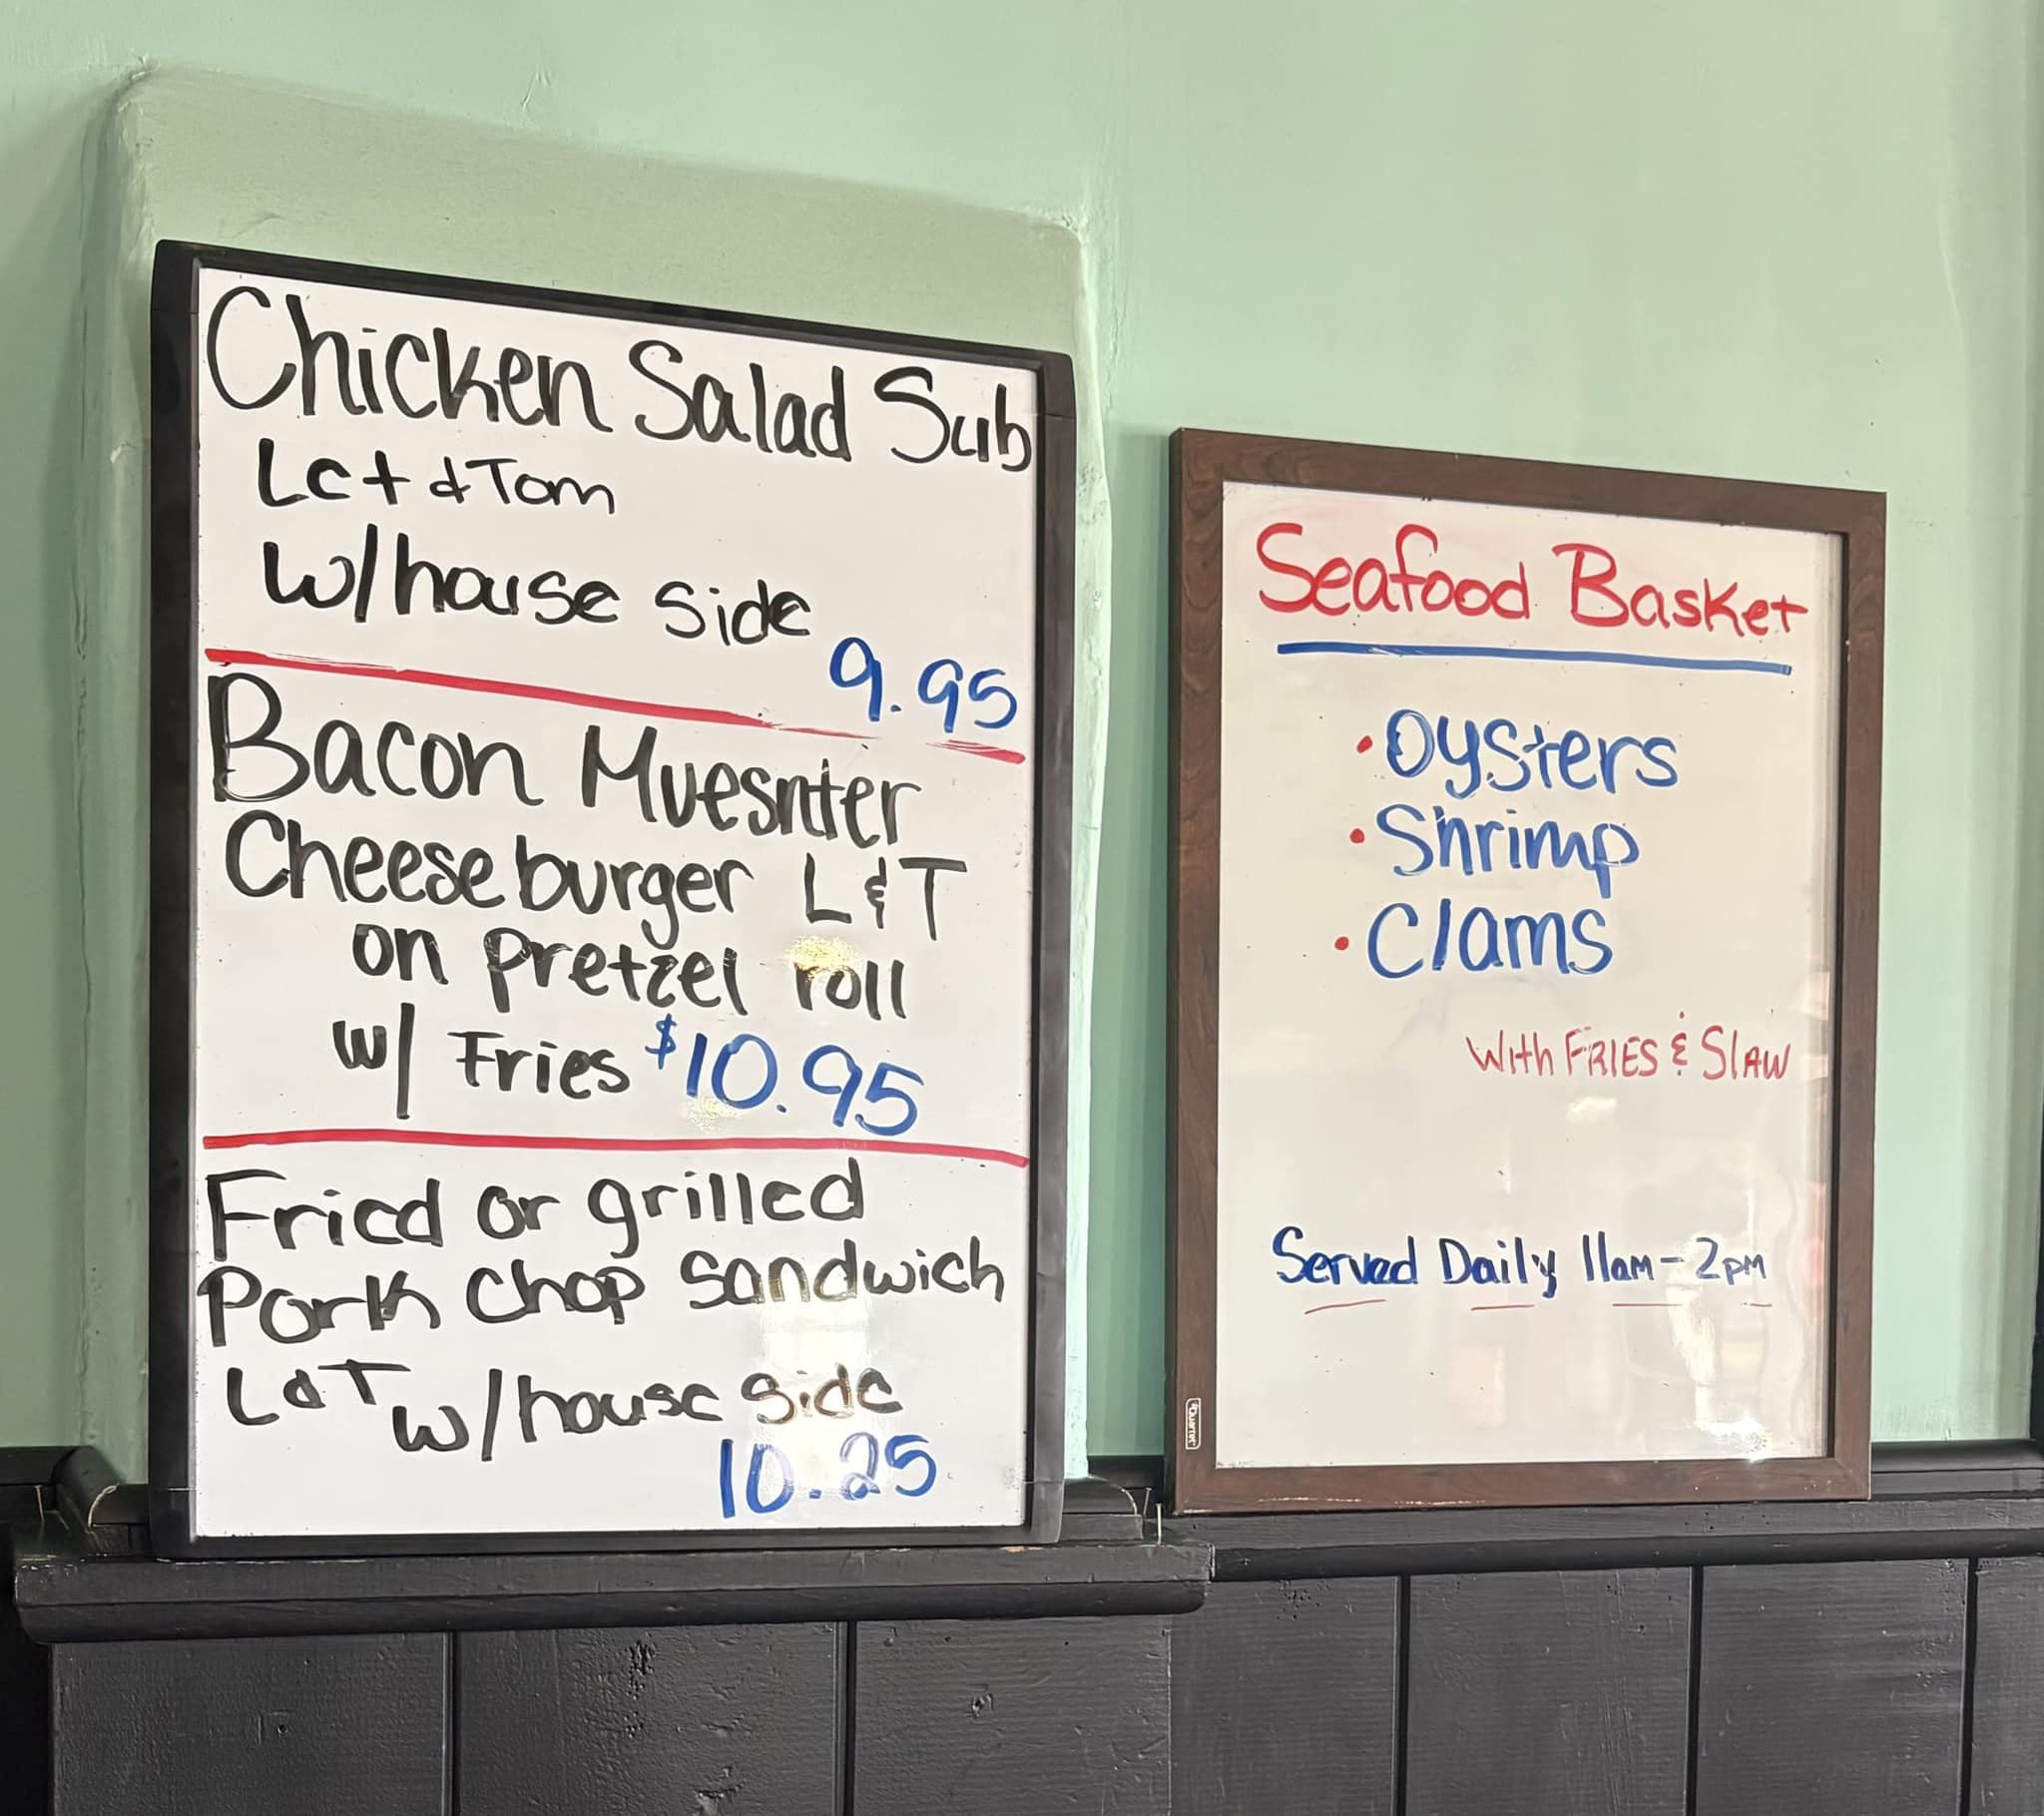 Chicken Salad Sub
Let & Tom
w/house side
9.95
Bacon Muesnter
Cheeseburger L & T
on pretzel roll
w/ Fries $10.95
Fried or grilled
Pork Chop Sandwich
L & T w/house side
10.25
Seafood Basket
• Oysters
• Shrimp
• Clams
With FRIES & SlAW
Served Daily 11am - 2pm
Quartet